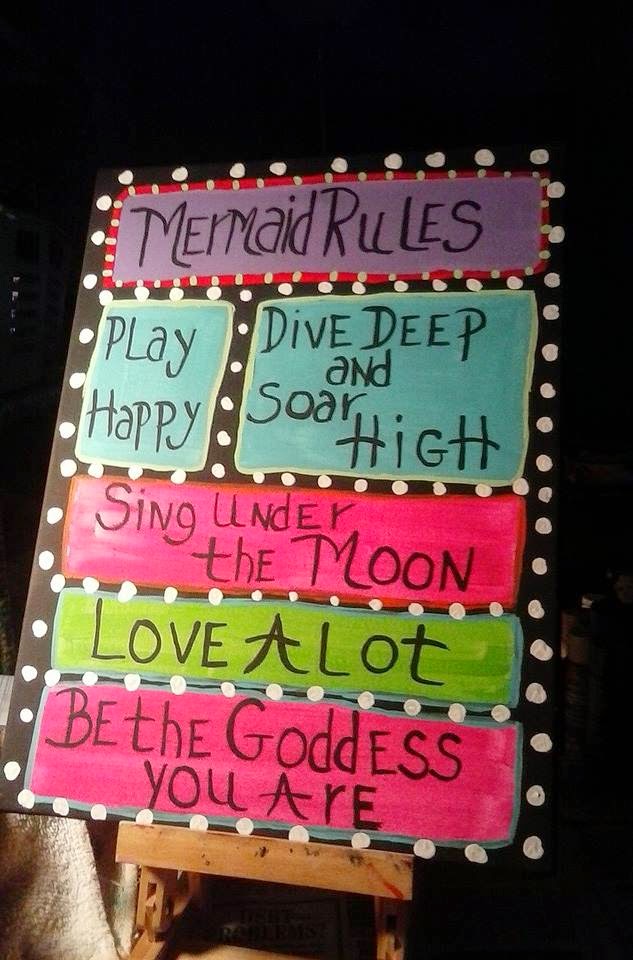 MERMAID RULES
PLAY
HAPPY
DIVE DEEP
and
Soar
HIGH
Sing UNDER
the MOON
LOVE A LOt
BE the GoddESS
YOU ARE
DEBT
PROBLEMS?